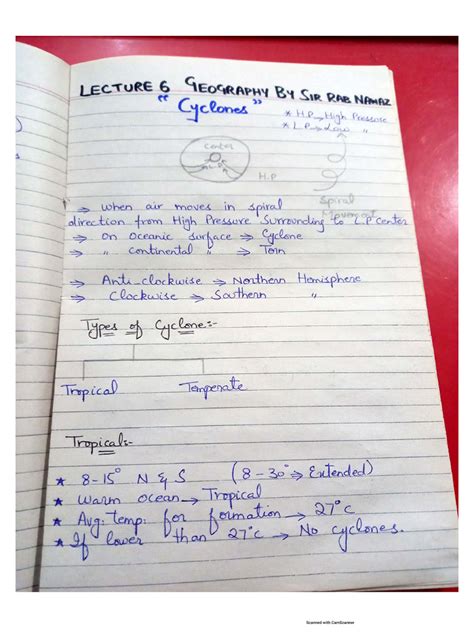 LECTURE 6 GEOGRAPHY BY SIR RAB NAWAZ
"Cyclones"
* H.P → High Pressure
* L.P → Low "
Center
L.P
H.P
Spiral
Movement
⇒ when air moves in spiral
direction from High Pressure Surrounding to L.P Center
⇒ on Oceanic surface ⇒ Cyclone
⇒ " Continental " ⇒ Torn
⇒ Anti-clockwise ⇒ Northern Hemisphere
⇒ Clockwise ⇒ Southern "
Types of Cyclone:-
Tropical Temperate
Tropical:-
* 8-15° N & S (8-30° ⇒ Extended)
* Warm ocean → Tropical
* Avg: temp: for formation → 27°c
* If lower than 27°c → No cyclones.
Scanned with CamScanner